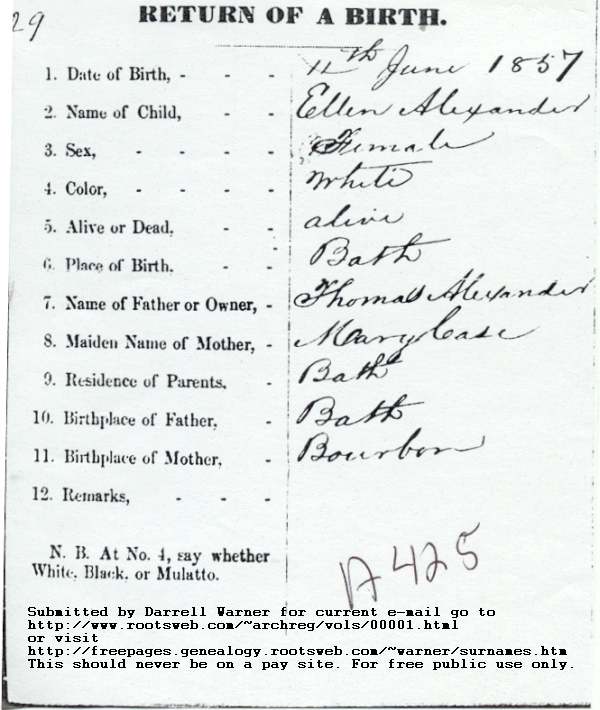 29
RETURN OF A BIRTH.
1. Date of Birth, - - - 11th June 1857
2. Name of Child, - - Ellen Alexander
3. Sex, - - - - Female
4. Color, - - - - White
5. Alive or Dead, - - alive
6. Place of Birth, - - Bath
7. Name of Father or Owner, - Thomas Alexander
8. Maiden Name of Mother, - Mary Case
9. Residence of Parents, - Bath
10. Birthplace of Father, - Bath
11. Birthplace of Mother, - Bourbon
12. Remarks, - - -
N. B. At No. 4, say whether
White, Black, or Mulatto.
A425
Submitted by Darrell Warner for current e-mail go to
http://www.rootsweb.com/~archreg/vols/00001.html
or visit
http://freepages.genealogy.rootsweb.com/~warner/surnames.htm
This should never be on a pay site. For free public use only.